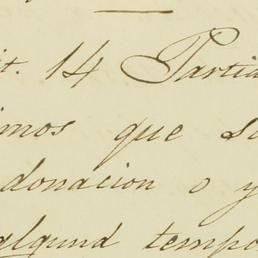 it. 14 Partid
imos que se
donacion o y
algund tempo